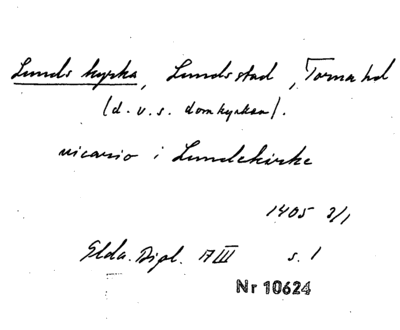 Lunds kyrka, Lunds stad, Torna hd
(d.v.s. domkyrkan).
vicario i Lundekirke
1405 3/1
Glda. Dipl. A III s. 1
Nr 10624